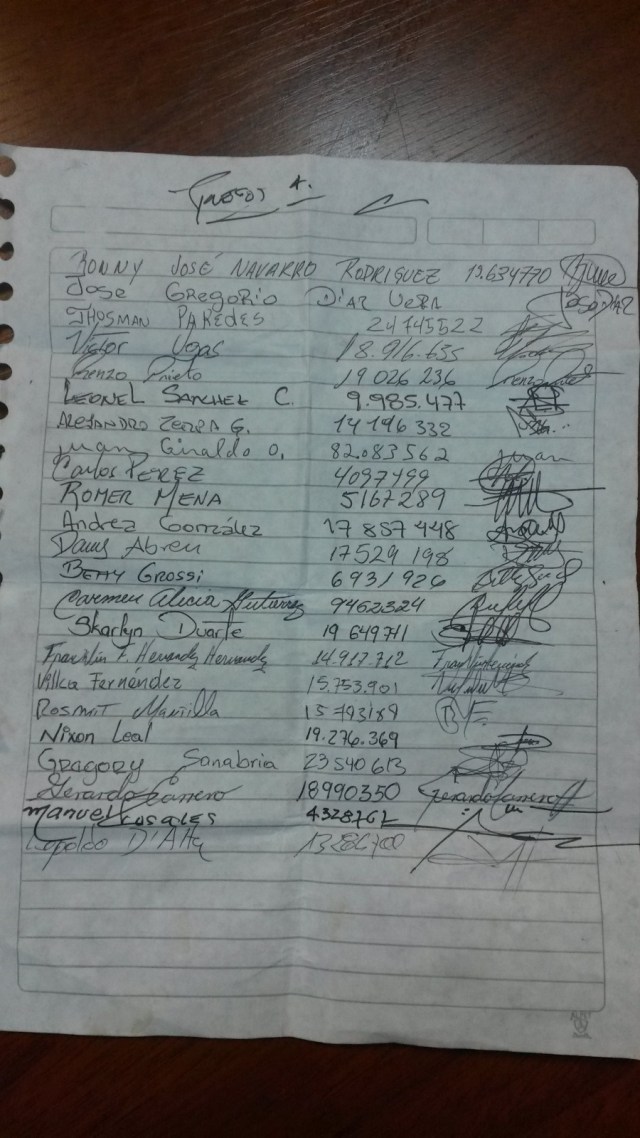 A.
RONNY JOSÉ NAVARRO RODRIGUEZ 12.634770
Jose GREGORIO DIAZ VERA
JHOSMAN PAREDES 24745522
Victor Ugas 18.916.635
Renzo Prieto 19 026 236
LEONEL SANCHEZ C. 9.985.477
ALEJANDRO ZERPA G. 14196 332
Juan Giraldo O. 82.083562 Juan
Carlos PEREZ 4097499
ROMER MENA 5167289
Andrez González 17 857 448
Abreu 17529 198
BETTY GROSSI 6931926
Carmen Alicia Gutierrez 9462324
Skarlyn Duarte 19 649711
Franklin F. Hernandez Hernandez 14.917.712
Villca Fernández 15.753.901
ROSMIT Mantilla 15793189
Nixon Leal 19.276.369
GRAGORY Sanabria 23540613
Gerardo Carrero 18990350 Gerardo Carrero
manuel ROSALES 4328762
Leopoldo D'Alta 13286700